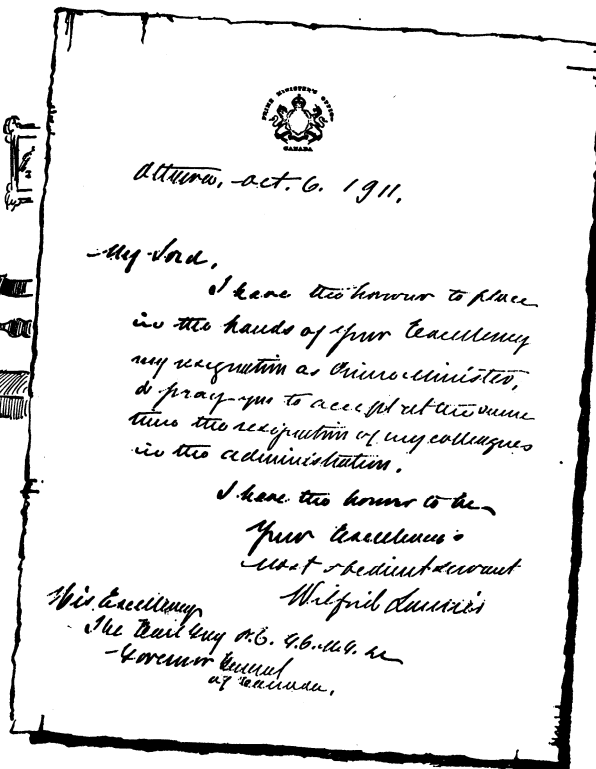 PRIME MINISTER'S OFFICE
CANADA
Ottawa, Oct. 6. 1911.
My Lord,
I have the honour to place
in the hands of your Excellency
my resignation as Prime Minister,
& pray you to accept at the same
time the resignation of my colleagues
in the administration.
I have the honor to be
Your Excellency's
most obedient servant
Wilfrid Laurier
His Excellency
The Earl Grey G.C.M.G. &c
Governor General
of Canada.